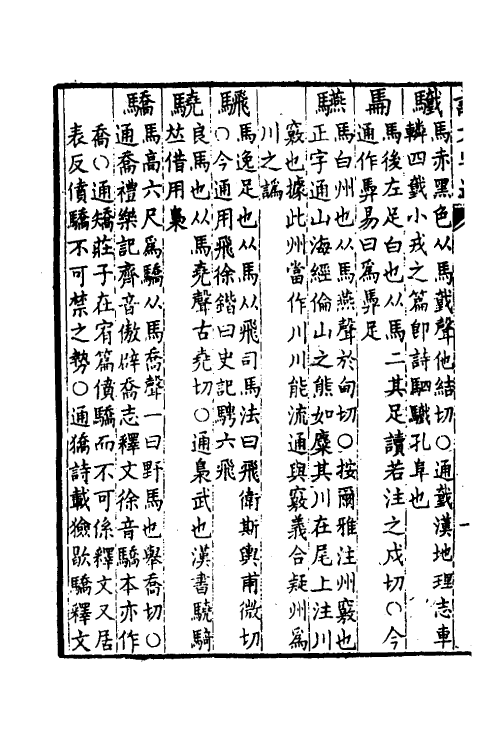 驖馬赤黑色从馬㦸聲他結切○通㦸漢地理志車
轔四㦸小戎之篇即詩駟驖孔阜也
馵馬後左足白也从馬二其足讀若注之戍切○今
通作馵易曰爲馵足
驠馬白州也从馬燕聲於甸切○按爾雅注州竅也
正字通山海經倫山之熊如麋其川在尾上注川
竅也據此州當作川川能流通與竅義合疑州爲
川之譌
騛馬逸足也从馬从飛司馬法曰飛衛斯輿甫微切
○今通用飛徐鍇曰史記騁六飛
驍良馬也从馬堯聲古堯切○通梟武也漢書驍騎
𠀤借用梟
驕馬高六尺爲驕从馬喬聲一曰野馬也舉喬切○
通喬禮樂記齊音傲辟喬志釋文徐音驕本亦作
喬○通矯莊子在宥篇僨驕而不可係釋文又居
表反僨驕不可禁之勢○通獢詩載獫歇驕釋文